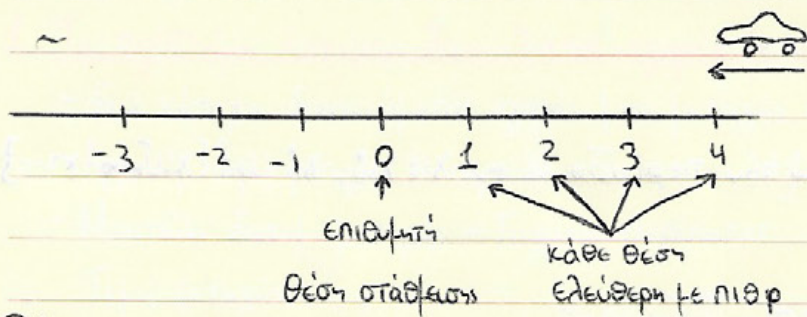 -3 -2 -1 0 1 2 3 4
επιθυμητή
θέση στάθμευσης
κάθε θέση
ελεύθερη με πιθ p